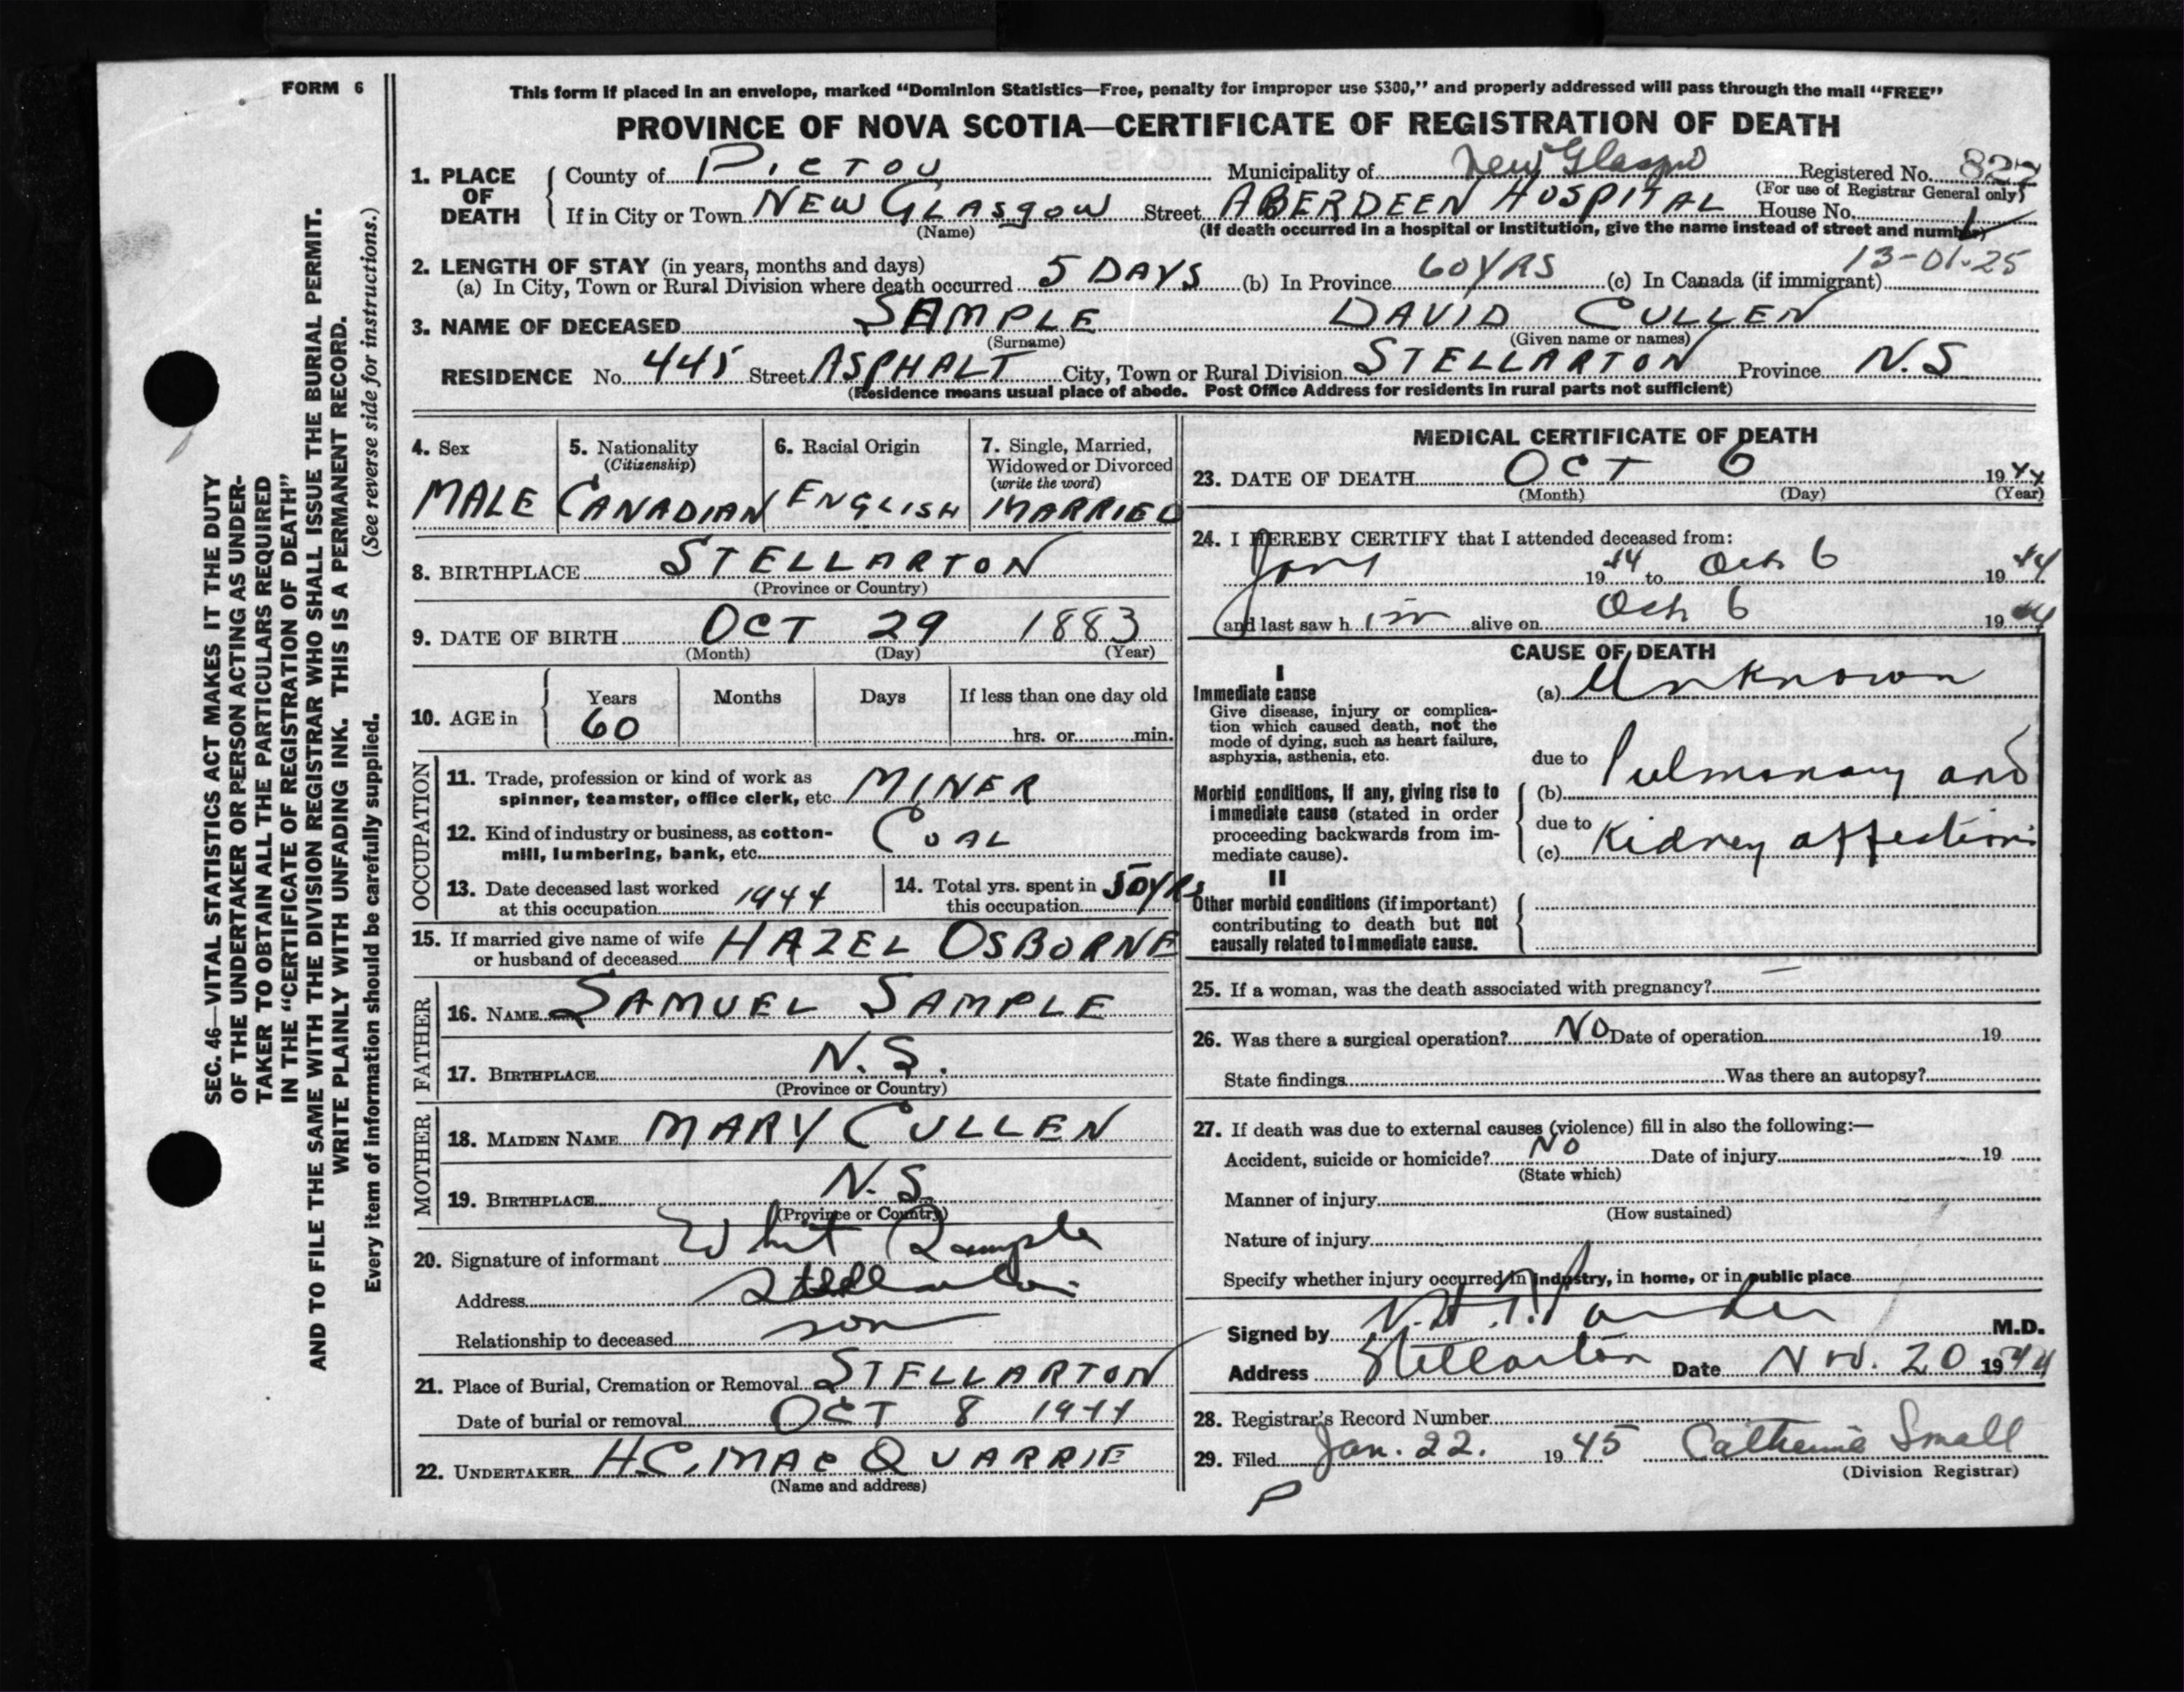 FORM 6
This form if placed in an envelope, marked "Dominion Statistics—Free, penalty for improper use $300," and properly addressed will pass through the mail "FREE"
PROVINCE OF NOVA SCOTIA—CERTIFICATE OF REGISTRATION OF DEATH
1. PLACE OF DEATH
County of PICTOU Municipality of New Glasgow Registered No. 827
(For use of Registrar General only)
If in City or Town NEW GLASGOW Street ABERDEEN HOSPITAL House No.
(Name) (If death occurred in a hospital or institution, give the name instead of street and number)
13-01-25
2. LENGTH OF STAY (in years, months and days)
(a) In City, Town or Rural Division where death occurred 5 DAYS (b) In Province 60 YRS (c) In Canada (if immigrant)
3. NAME OF DECEASED SAMPLE DAVID CULLEN
(Surname) (Given name or names)
RESIDENCE No. 445 Street ASPHALT City, Town or Rural Division STELLARTON Province N.S
(Residence means usual place of abode. Post Office Address for residents in rural parts not sufficient)
4. Sex
MALE
5. Nationality
(Citizenship)
CANADIAN
6. Racial Origin
ENGLISH
7. Single, Married,
Widowed or Divorced
(write the word)
MARRIED
8. BIRTHPLACE STELLARTON
(Province or Country)
9. DATE OF BIRTH OCT 29 1883
(Month) (Day) (Year)
10. AGE in
Years Months Days If less than one day old
60 hrs. or min.
OCCUPATION
11. Trade, profession or kind of work as
spinner, teamster, office clerk, etc. MINER
12. Kind of industry or business, as cotton-
mill, lumbering, bank, etc. COAL
13. Date deceased last worked
at this occupation 1944
14. Total yrs. spent in
this occupation 50 YRS
15. If married give name of wife
or husband of deceased HAZEL OSBORNE
FATHER
16. NAME SAMUEL SAMPLE
17. BIRTHPLACE N.S.
(Province or Country)
MOTHER
18. MAIDEN NAME MARY CULLEN
19. BIRTHPLACE N.S.
(Province or Country)
20. Signature of informant Whit Sample
Address Stellarton
Relationship to deceased son
21. Place of Burial, Cremation or Removal STELLARTON
Date of burial or removal OCT 8 1944
22. UNDERTAKER H.C. MACQUARRIE
(Name and address)
MEDICAL CERTIFICATE OF DEATH
23. DATE OF DEATH OCT 6 1944
(Month) (Day) (Year)
24. I HEREBY CERTIFY that I attended deceased from:
1944 to Oct 6 1944
and last saw h im alive on Oct 6 1944
CAUSE OF DEATH
I
Immediate cause
Give disease, injury or complica-
tion which caused death, not the
mode of dying, such as heart failure,
asphyxia, asthenia, etc.
(a) Unknown
due to
Morbid conditions, if any, giving rise to
immediate cause (stated in order
proceeding backwards from im-
mediate cause).
(b) Pulmonary and
due to
(c) Kidney affections
II
Other morbid conditions (if important)
contributing to death but not
causally related to immediate cause.
25. If a woman, was the death associated with pregnancy? —
26. Was there a surgical operation? NO Date of operation 19
State findings Was there an autopsy?
27. If death was due to external causes (violence) fill in also the following:—
Accident, suicide or homicide? NO Date of injury 19
(State which)
Manner of injury
(How sustained)
Nature of injury
Specify whether injury occurred in industry, in home, or in public place
Signed by M.D.
Address Stellarton Date Nov. 20 1944
28. Registrar's Record Number
29. Filed Jan. 22. 1945 Catherine Small
(Division Registrar)
P
SEC. 46—VITAL STATISTICS ACT MAKES IT THE DUTY
OF THE UNDERTAKER OR PERSON ACTING AS UNDER-
TAKER TO OBTAIN ALL THE PARTICULARS REQUIRED
IN THE "CERTIFICATE OF REGISTRATION OF DEATH"
AND TO FILE THE SAME WITH THE DIVISION REGISTRAR WHO SHALL ISSUE THE BURIAL PERMIT.
WRITE PLAINLY WITH UNFADING INK. THIS IS A PERMANENT RECORD.
Every item of information should be carefully supplied. (See reverse side for instructions.)